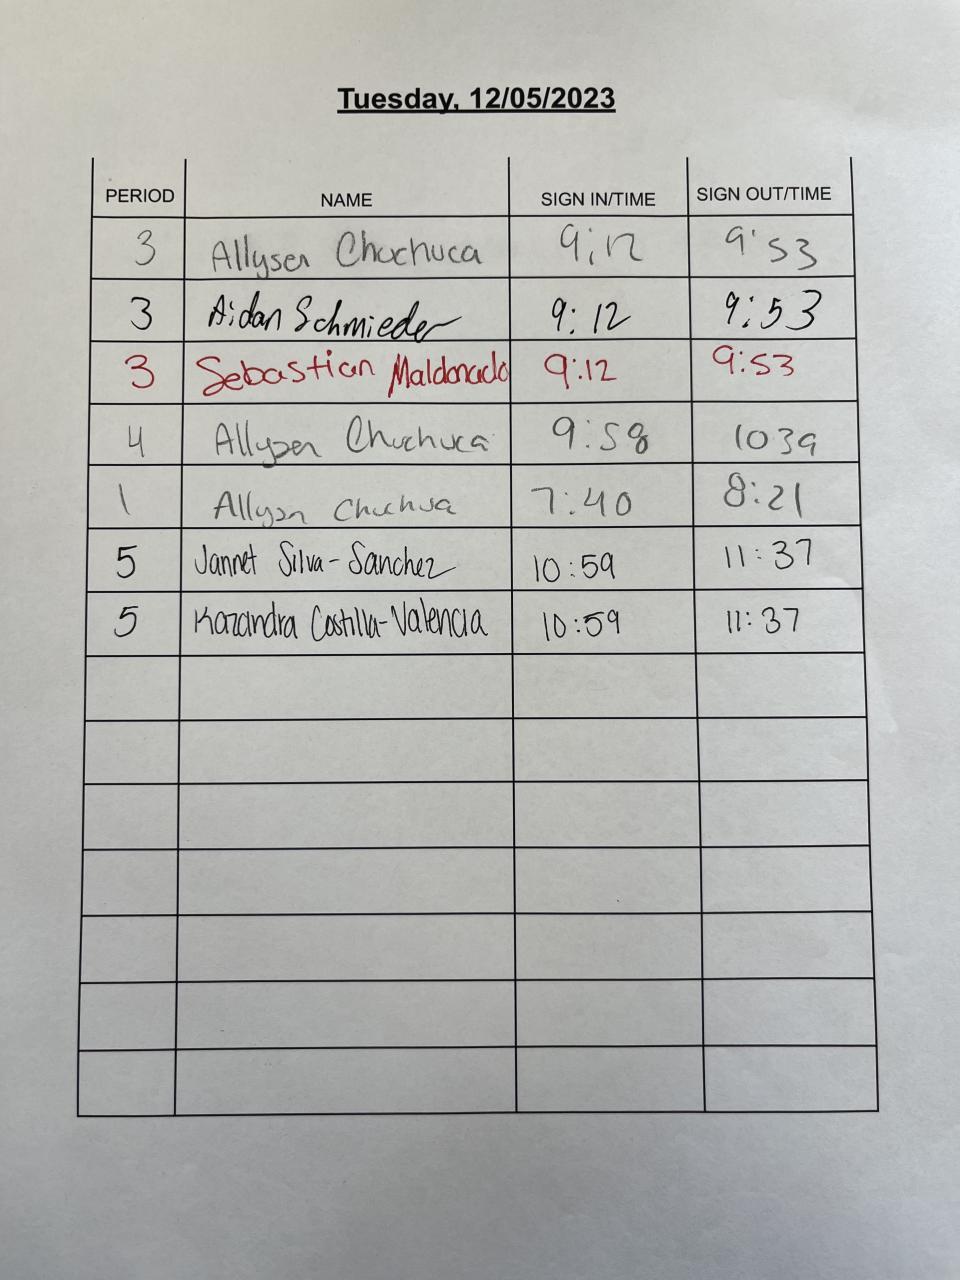 Tuesday, 12/05/2023
PERIOD NAME SIGN IN/TIME SIGN OUT/TIME
3 Allysen Chuchuca 9:12 9:53
3 Aidan Schmieder 9:12 9:53
3 Sebastian Maldonado 9:12 9:53
4 Allysen Chuchuca 9:58 1039
1 Allysn Chuchua 7:40 8:21
5 Jannet Silva-Sanchez 10:59 11:37
5 Kazandra Castilla-Valencia 10:59 11:37